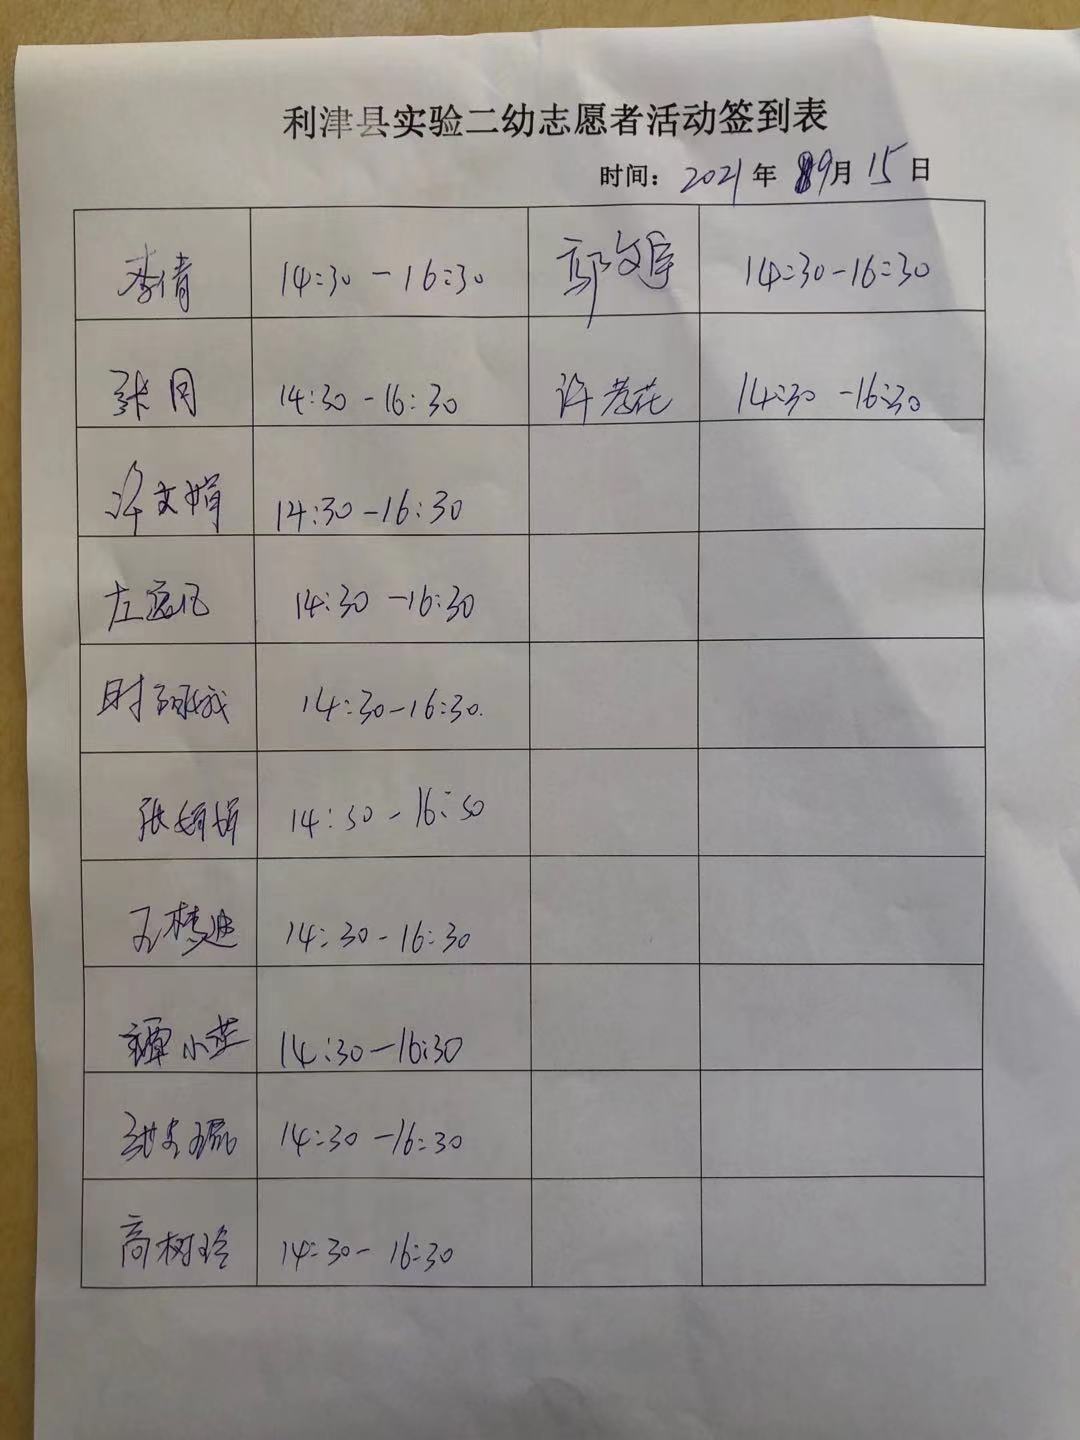 利津县实验二幼志愿者活动签到表
时间：2021年9月15日
李倩 14:30-16:30 14:30-16:30
张月 14:30-16:30 许芝花 14:30-16:30
许文娟 14:30-16:30
14:30-16:30
14:30-16:30.
张娟娟 14:30-16:30
王梦迪 14:30-16:30
谭小芷 14:30-16:30
14:30-16:30
高树玲 14:30-16:30